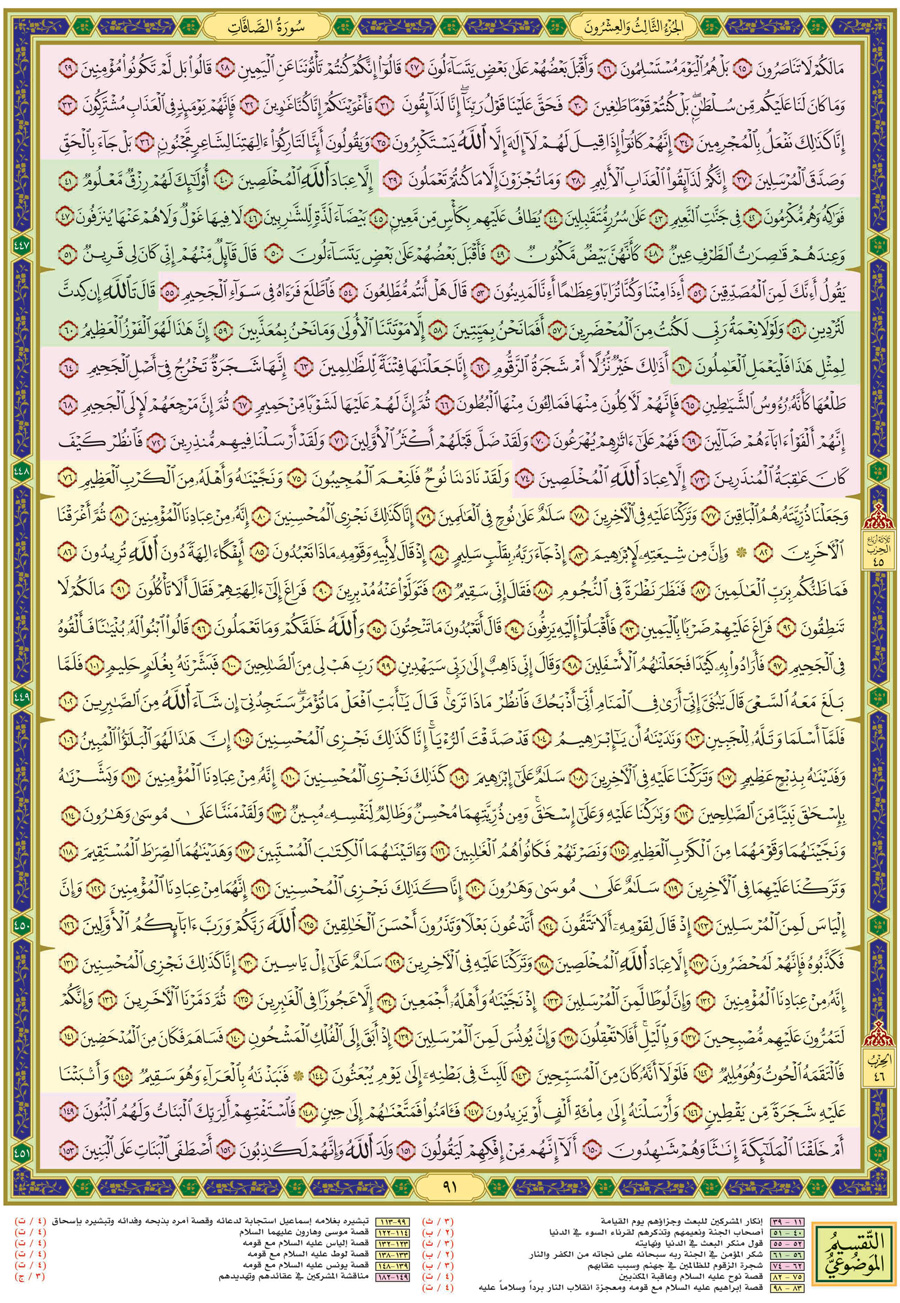 سُورَةُ الصَّافَّاتِ
الجُزْءُ الثَّالِثُ وَالعِشْرُونَ
مَا لَكُمْ لَا تَنَاصَرُونَ ٢٥ بَلْ هُمُ ٱلْيَوْمَ مُسْتَسْلِمُونَ ٢٦ وَأَقْبَلَ بَعْضُهُمْ عَلَىٰ بَعْضٍ يَتَسَآءَلُونَ ٢٧ قَالُوٓا۟ إِنَّكُمْ كُنتُمْ تَأْتُونَنَا عَنِ ٱلْيَمِينِ ٢٨ قَالُوا۟ بَل لَّمْ تَكُونُوا۟ مُؤْمِنِينَ ٢٩
وَمَا كَانَ لَنَا عَلَيْكُم مِّن سُلْطَٰنٍۭ ۖ بَلْ كُنتُمْ قَوْمًا طَٰغِينَ ٣٠ فَحَقَّ عَلَيْنَا قَوْلُ رَبِّنَآ ۖ إِنَّا لَذَآئِقُونَ ٣١ فَأَغْوَيْنَٰكُمْ إِنَّا كُنَّا غَٰوِينَ ٣٢ فَإِنَّهُمْ يَوْمَئِذٍ فِى ٱلْعَذَابِ مُشْتَرِكُونَ ٣٣
إِنَّا كَذَٰلِكَ نَفْعَلُ بِٱلْمُجْرِمِينَ ٣٤ إِنَّهُمْ كَانُوٓا۟ إِذَا قِيلَ لَهُمْ لَآ إِلَٰهَ إِلَّا ٱللَّهُ يَسْتَكْبِرُونَ ٣٥ وَيَقُولُونَ أَئِنَّا لَتَارِكُوٓا۟ ءَالِهَتِنَا لِشَاعِرٍ مَّجْنُونٍۭ ٣٦ بَلْ جَآءَ بِٱلْحَقِّ
وَصَدَّقَ ٱلْمُرْسَلِينَ ٣٧ إِنَّكُمْ لَذَآئِقُوا۟ ٱلْعَذَابِ ٱلْأَلِيمِ ٣٨ وَمَا تُجْزَوْنَ إِلَّا مَا كُنتُمْ تَعْمَلُونَ ٣٩ إِلَّا عِبَادَ ٱللَّهِ ٱلْمُخْلَصِينَ ٤٠ أُو۟لَٰٓئِكَ لَهُمْ رِزْقٌ مَّعْلُومٌ ٤١
فَوَٰكِهُ ۖ وَهُم مُّكْرَمُونَ ٤٢ فِى جَنَّٰتِ ٱلنَّعِيمِ ٤٣ عَلَىٰ سُرُرٍ مُّتَقَٰبِلِينَ ٤٤ يُطَافُ عَلَيْهِم بِكَأْسٍ مِّن مَّعِينٍۭ ٤٥ بَيْضَآءَ لَذَّةٍ لِّلشَّٰرِبِينَ ٤٦ لَا فِيهَا غَوْلٌ وَلَا هُمْ عَنْهَا يُنزَفُونَ ٤٧
وَعِندَهُمْ قَٰصِرَٰتُ ٱلطَّرْفِ عِينٌ ٤٨ كَأَنَّهُنَّ بَيْضٌ مَّكْنُونٌ ٤٩ فَأَقْبَلَ بَعْضُهُمْ عَلَىٰ بَعْضٍ يَتَسَآءَلُونَ ٥٠ قَالَ قَآئِلٌ مِّنْهُمْ إِنِّى كَانَ لِى قَرِينٌ ٥١
يَقُولُ أَءِنَّكَ لَمِنَ ٱلْمُصَدِّقِينَ ٥٢ أَءِذَا مِتْنَا وَكُنَّا تُرَابًا وَعِظَٰمًا أَءِنَّا لَمَدِينُونَ ٥٣ قَالَ هَلْ أَنتُم مُّطَّلِعُونَ ٥٤ فَٱطَّلَعَ فَرَءَاهُ فِى سَوَآءِ ٱلْجَحِيمِ ٥٥ قَالَ تَٱللَّهِ إِن كِدتَّ
لَتُرْدِينِ ٥٦ وَلَوْلَا نِعْمَةُ رَبِّى لَكُنتُ مِنَ ٱلْمُحْضَرِينَ ٥٧ أَفَمَا نَحْنُ بِمَيِّتِينَ ٥٨ إِلَّا مَوْتَتَنَا ٱلْأُولَىٰ وَمَا نَحْنُ بِمُعَذَّبِينَ ٥٩ إِنَّ هَٰذَا لَهُوَ ٱلْفَوْزُ ٱلْعَظِيمُ ٦٠
لِمِثْلِ هَٰذَا فَلْيَعْمَلِ ٱلْعَٰمِلُونَ ٦١ أَذَٰلِكَ خَيْرٌ نُّزُلًا أَمْ شَجَرَةُ ٱلزَّقُّومِ ٦٢ إِنَّا جَعَلْنَٰهَا فِتْنَةً لِّلظَّٰلِمِينَ ٦٣ إِنَّهَا شَجَرَةٌ تَخْرُجُ فِىٓ أَصْلِ ٱلْجَحِيمِ ٦٤
طَلْعُهَا كَأَنَّهُۥ رُءُوسُ ٱلشَّيَٰطِينِ ٦٥ فَإِنَّهُمْ لَءَاكِلُونَ مِنْهَا فَمَالِـُٔونَ مِنْهَا ٱلْبُطُونَ ٦٦ ثُمَّ إِنَّ لَهُمْ عَلَيْهَا لَشَوْبًا مِّنْ حَمِيمٍ ٦٧ ثُمَّ إِنَّ مَرْجِعَهُمْ لَإِلَى ٱلْجَحِيمِ ٦٨
إِنَّهُمْ أَلْفَوْا۟ ءَابَآءَهُمْ ضَآلِّينَ ٦٩ فَهُمْ عَلَىٰٓ ءَاثَٰرِهِمْ يُهْرَعُونَ ٧٠ وَلَقَدْ ضَلَّ قَبْلَهُمْ أَكْثَرُ ٱلْأَوَّلِينَ ٧١ وَلَقَدْ أَرْسَلْنَا فِيهِم مُّنذِرِينَ ٧٢ فَٱنظُرْ كَيْفَ
كَانَ عَٰقِبَةُ ٱلْمُنذَرِينَ ٧٣ إِلَّا عِبَادَ ٱللَّهِ ٱلْمُخْلَصِينَ ٧٤ وَلَقَدْ نَادَىٰنَا نُوحٌ فَلَنِعْمَ ٱلْمُجِيبُونَ ٧٥ وَنَجَّيْنَٰهُ وَأَهْلَهُۥ مِنَ ٱلْكَرْبِ ٱلْعَظِيمِ ٧٦
وَجَعَلْنَا ذُرِّيَّتَهُۥ هُمُ ٱلْبَاقِينَ ٧٧ وَتَرَكْنَا عَلَيْهِ فِى ٱلْءَاخِرِينَ ٧٨ سَلَٰمٌ عَلَىٰ نُوحٍ فِى ٱلْعَٰلَمِينَ ٧٩ إِنَّا كَذَٰلِكَ نَجْزِى ٱلْمُحْسِنِينَ ٨٠ إِنَّهُۥ مِنْ عِبَادِنَا ٱلْمُؤْمِنِينَ ٨١ ثُمَّ أَغْرَقْنَا
ٱلْءَاخَرِينَ ٨٢ ۞ وَإِنَّ مِن شِيعَتِهِۦ لَإِبْرَٰهِيمَ ٨٣ إِذْ جَآءَ رَبَّهُۥ بِقَلْبٍ سَلِيمٍ ٨٤ إِذْ قَالَ لِأَبِيهِ وَقَوْمِهِۦ مَاذَا تَعْبُدُونَ ٨٥ أَئِفْكًا ءَالِهَةً دُونَ ٱللَّهِ تُرِيدُونَ ٨٦
فَمَا ظَنُّكُم بِرَبِّ ٱلْعَٰلَمِينَ ٨٧ فَنَظَرَ نَظْرَةً فِى ٱلنُّجُومِ ٨٨ فَقَالَ إِنِّى سَقِيمٌ ٨٩ فَتَوَلَّوْا۟ عَنْهُ مُدْبِرِينَ ٩٠ فَرَاغَ إِلَىٰٓ ءَالِهَتِهِمْ فَقَالَ أَلَا تَأْكُلُونَ ٩١ مَا لَكُمْ لَا
تَنطِقُونَ ٩٢ فَرَاغَ عَلَيْهِمْ ضَرْبًۢا بِٱلْيَمِينِ ٩٣ فَأَقْبَلُوٓا۟ إِلَيْهِ يَزِفُّونَ ٩٤ قَالَ أَتَعْبُدُونَ مَا تَنْحِتُونَ ٩٥ وَٱللَّهُ خَلَقَكُمْ وَمَا تَعْمَلُونَ ٩٦ قَالُوا۟ ٱبْنُوا۟ لَهُۥ بُنْيَٰنًا فَأَلْقُوهُ
فِى ٱلْجَحِيمِ ٩٧ فَأَرَادُوا۟ بِهِۦ كَيْدًا فَجَعَلْنَٰهُمُ ٱلْأَسْفَلِينَ ٩٨ وَقَالَ إِنِّى ذَاهِبٌ إِلَىٰ رَبِّى سَيَهْدِينِ ٩٩ رَبِّ هَبْ لِى مِنَ ٱلصَّٰلِحِينَ ١٠٠ فَبَشَّرْنَٰهُ بِغُلَٰمٍ حَلِيمٍ ١٠١ فَلَمَّا
بَلَغَ مَعَهُ ٱلسَّعْىَ قَالَ يَٰبُنَىَّ إِنِّىٓ أَرَىٰ فِى ٱلْمَنَامِ أَنِّىٓ أَذْبَحُكَ فَٱنظُرْ مَاذَا تَرَىٰ ۚ قَالَ يَٰٓأَبَتِ ٱفْعَلْ مَا تُؤْمَرُ ۖ سَتَجِدُنِىٓ إِن شَآءَ ٱللَّهُ مِنَ ٱلصَّٰبِرِينَ ١٠٢
فَلَمَّآ أَسْلَمَا وَتَلَّهُۥ لِلْجَبِينِ ١٠٣ وَنَٰدَيْنَٰهُ أَن يَٰٓإِبْرَٰهِيمُ ١٠٤ قَدْ صَدَّقْتَ ٱلرُّءْيَآ ۚ إِنَّا كَذَٰلِكَ نَجْزِى ٱلْمُحْسِنِينَ ١٠٥ إِنَّ هَٰذَا لَهُوَ ٱلْبَلَٰٓؤُا۟ ٱلْمُبِينُ ١٠٦
وَفَدَيْنَٰهُ بِذِبْحٍ عَظِيمٍ ١٠٧ وَتَرَكْنَا عَلَيْهِ فِى ٱلْءَاخِرِينَ ١٠٨ سَلَٰمٌ عَلَىٰٓ إِبْرَٰهِيمَ ١٠٩ كَذَٰلِكَ نَجْزِى ٱلْمُحْسِنِينَ ١١٠ إِنَّهُۥ مِنْ عِبَادِنَا ٱلْمُؤْمِنِينَ ١١١ وَبَشَّرْنَٰهُ
بِإِسْحَٰقَ نَبِيًّا مِّنَ ٱلصَّٰلِحِينَ ١١٢ وَبَٰرَكْنَا عَلَيْهِ وَعَلَىٰٓ إِسْحَٰقَ ۚ وَمِن ذُرِّيَّتِهِمَا مُحْسِنٌ وَظَالِمٌ لِّنَفْسِهِۦ مُبِينٌ ١١٣ وَلَقَدْ مَنَنَّا عَلَىٰ مُوسَىٰ وَهَٰرُونَ ١١٤
وَنَجَّيْنَٰهُمَا وَقَوْمَهُمَا مِنَ ٱلْكَرْبِ ٱلْعَظِيمِ ١١٥ وَنَصَرْنَٰهُمْ فَكَانُوا۟ هُمُ ٱلْغَٰلِبِينَ ١١٦ وَءَاتَيْنَٰهُمَا ٱلْكِتَٰبَ ٱلْمُسْتَبِينَ ١١٧ وَهَدَيْنَٰهُمَا ٱلصِّرَٰطَ ٱلْمُسْتَقِيمَ ١١٨
وَتَرَكْنَا عَلَيْهِمَا فِى ٱلْءَاخِرِينَ ١١٩ سَلَٰمٌ عَلَىٰ مُوسَىٰ وَهَٰرُونَ ١٢٠ إِنَّا كَذَٰلِكَ نَجْزِى ٱلْمُحْسِنِينَ ١٢١ إِنَّهُمَا مِنْ عِبَادِنَا ٱلْمُؤْمِنِينَ ١٢٢ وَإِنَّ
إِلْيَاسَ لَمِنَ ٱلْمُرْسَلِينَ ١٢٣ إِذْ قَالَ لِقَوْمِهِۦٓ أَلَا تَتَّقُونَ ١٢٤ أَتَدْعُونَ بَعْلًا وَتَذَرُونَ أَحْسَنَ ٱلْخَٰلِقِينَ ١٢٥ ٱللَّهَ رَبَّكُمْ وَرَبَّ ءَابَآئِكُمُ ٱلْأَوَّلِينَ ١٢٦
فَكَذَّبُوهُ فَإِنَّهُمْ لَمُحْضَرُونَ ١٢٧ إِلَّا عِبَادَ ٱللَّهِ ٱلْمُخْلَصِينَ ١٢٨ وَتَرَكْنَا عَلَيْهِ فِى ٱلْءَاخِرِينَ ١٢٩ سَلَٰمٌ عَلَىٰٓ إِلْ يَاسِينَ ١٣٠ إِنَّا كَذَٰلِكَ نَجْزِى ٱلْمُحْسِنِينَ ١٣١
إِنَّهُۥ مِنْ عِبَادِنَا ٱلْمُؤْمِنِينَ ١٣٢ وَإِنَّ لُوطًا لَّمِنَ ٱلْمُرْسَلِينَ ١٣٣ إِذْ نَجَّيْنَٰهُ وَأَهْلَهُۥٓ أَجْمَعِينَ ١٣٤ إِلَّا عَجُوزًا فِى ٱلْغَٰبِرِينَ ١٣٥ ثُمَّ دَمَّرْنَا ٱلْءَاخَرِينَ ١٣٦ وَإِنَّكُمْ
لَتَمُرُّونَ عَلَيْهِم مُّصْبِحِينَ ١٣٧ وَبِٱلَّيْلِ ۗ أَفَلَا تَعْقِلُونَ ١٣٨ وَإِنَّ يُونُسَ لَمِنَ ٱلْمُرْسَلِينَ ١٣٩ إِذْ أَبَقَ إِلَى ٱلْفُلْكِ ٱلْمَشْحُونِ ١٤٠ فَسَاهَمَ فَكَانَ مِنَ ٱلْمُدْحَضِينَ ١٤١
فَٱلْتَقَمَهُ ٱلْحُوتُ وَهُوَ مُلِيمٌ ١٤٢ فَلَوْلَآ أَنَّهُۥ كَانَ مِنَ ٱلْمُسَبِّحِينَ ١٤٣ لَلَبِثَ فِى بَطْنِهِۦٓ إِلَىٰ يَوْمِ يُبْعَثُونَ ١٤٤ ۞ فَنَبَذْنَٰهُ بِٱلْعَرَآءِ وَهُوَ سَقِيمٌ ١٤٥ وَأَنۢبَتْنَا
عَلَيْهِ شَجَرَةً مِّن يَقْطِينٍ ١٤٦ وَأَرْسَلْنَٰهُ إِلَىٰ مِا۟ئَةِ أَلْفٍ أَوْ يَزِيدُونَ ١٤٧ فَـَٔامَنُوا۟ فَمَتَّعْنَٰهُمْ إِلَىٰ حِينٍ ١٤٨ فَٱسْتَفْتِهِمْ أَلِرَبِّكَ ٱلْبَنَاتُ وَلَهُمُ ٱلْبَنُونَ ١٤٩
أَمْ خَلَقْنَا ٱلْمَلَٰٓئِكَةَ إِنَٰثًا وَهُمْ شَٰهِدُونَ ١٥٠ أَلَآ إِنَّهُم مِّنْ إِفْكِهِمْ لَيَقُولُونَ ١٥١ وَلَدَ ٱللَّهُ وَإِنَّهُمْ لَكَٰذِبُونَ ١٥٢ أَصْطَفَى ٱلْبَنَاتِ عَلَى ٱلْبَنِينَ ١٥٣
ثلاثة أرباع
الحزب
٤٥
الحزب
٤٦
٤٤٧
٤٤٨
٤٤٩
٤٥٠
٤٥١
٩١
التَّقسِيمُ
المَوضُوعِيُّ
١١ - ٣٩ إنكار المشركين للبعث وجزاؤهم يوم القيامة (٣ / ث)
٤٠ - ٥١ أصحاب الجنة ونعيمهم وتذكرهم لقرناء السوء في الدنيا (٢ / ب)
٥٢ - ٥٥ قول منكر البعث في الدنيا ونهايته (٣ / ث)
٥٦ - ٦١ شكر المؤمن في الجنة ربه سبحانه على نجاته من الكفر والنار (٢ / ب)
٦٢ - ٧٤ شجرة الزقوم للظالمين في جهنم وسبب عقابهم (٣ / ث)
٧٥ - ٨٢ قصة نوح عليه السلام وعاقبة المكذبين (٤ / ت)
٨٣ - ٩٨ قصة إبراهيم عليه السلام مع قومه ومعجزة انقلاب النار برداً وسلاماً عليه (٤ / ت)
٩٩-١١٣ تبشيره بغلامه إسماعيل استجابة لدعائه وقصة أمره بذبحه وفدائه وتبشيره بإسحاق (٤ / ت)
١١٤-١٢٢ قصة موسى وهارون عليهما السلام (٤ / ت)
١٢٣-١٣٢ قصة إلياس عليه السلام مع قومه (٤ / ت)
١٣٣-١٣٨ قصة لوط عليه السلام مع قومه (٤ / ت)
١٣٩-١٤٨ قصة يونس عليه السلام مع قومه (٤ / ت)
١٤٩-١٨٢ مناقشة المشركين في عقائدهم وتهديدهم (٣ / ج)